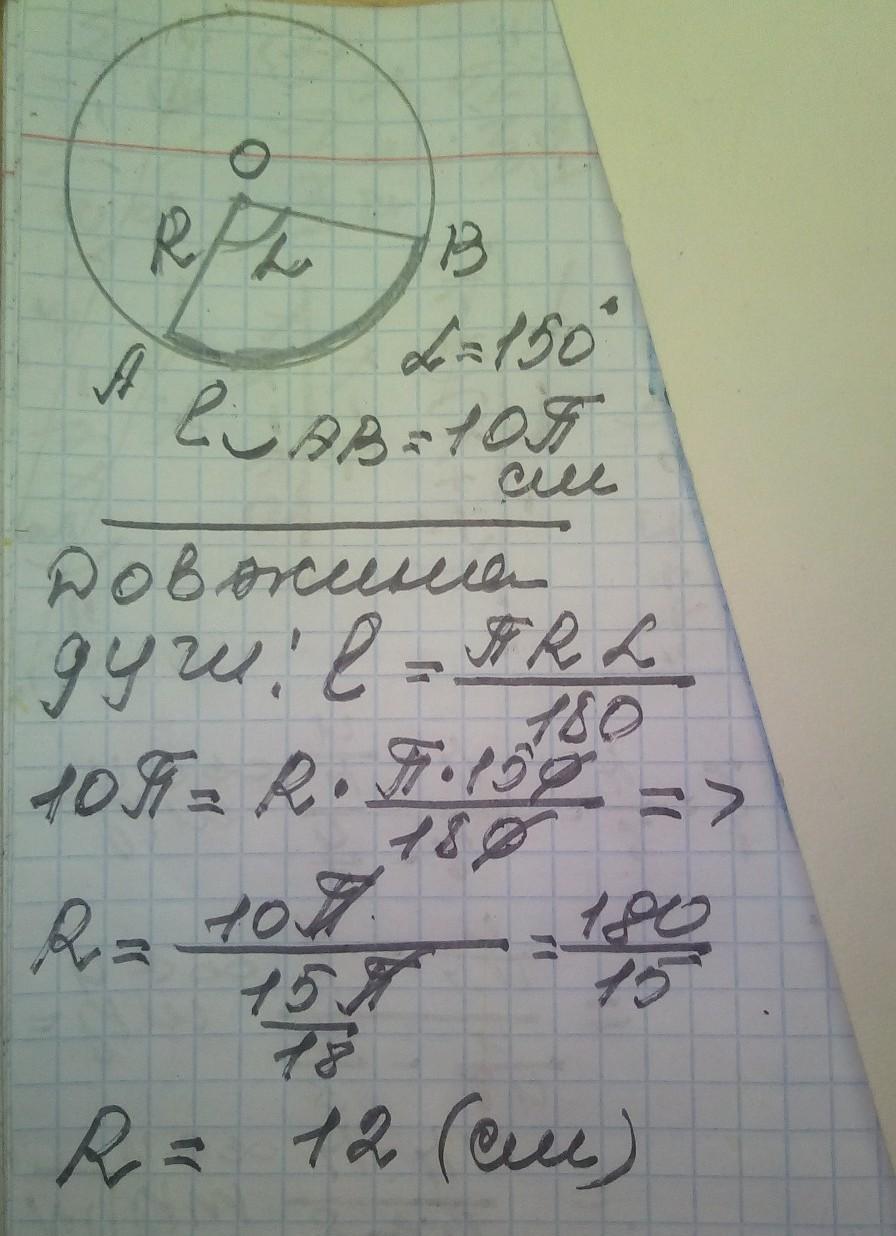 O
R α B
A
α = 150°
l ◡ AB = 10π
см
Довжина
дуги: l = πRα / 180
10π = R · π·150 / 180 =>
R = 10π / (15π / 18) = 180 / 15
R = 12 (см)